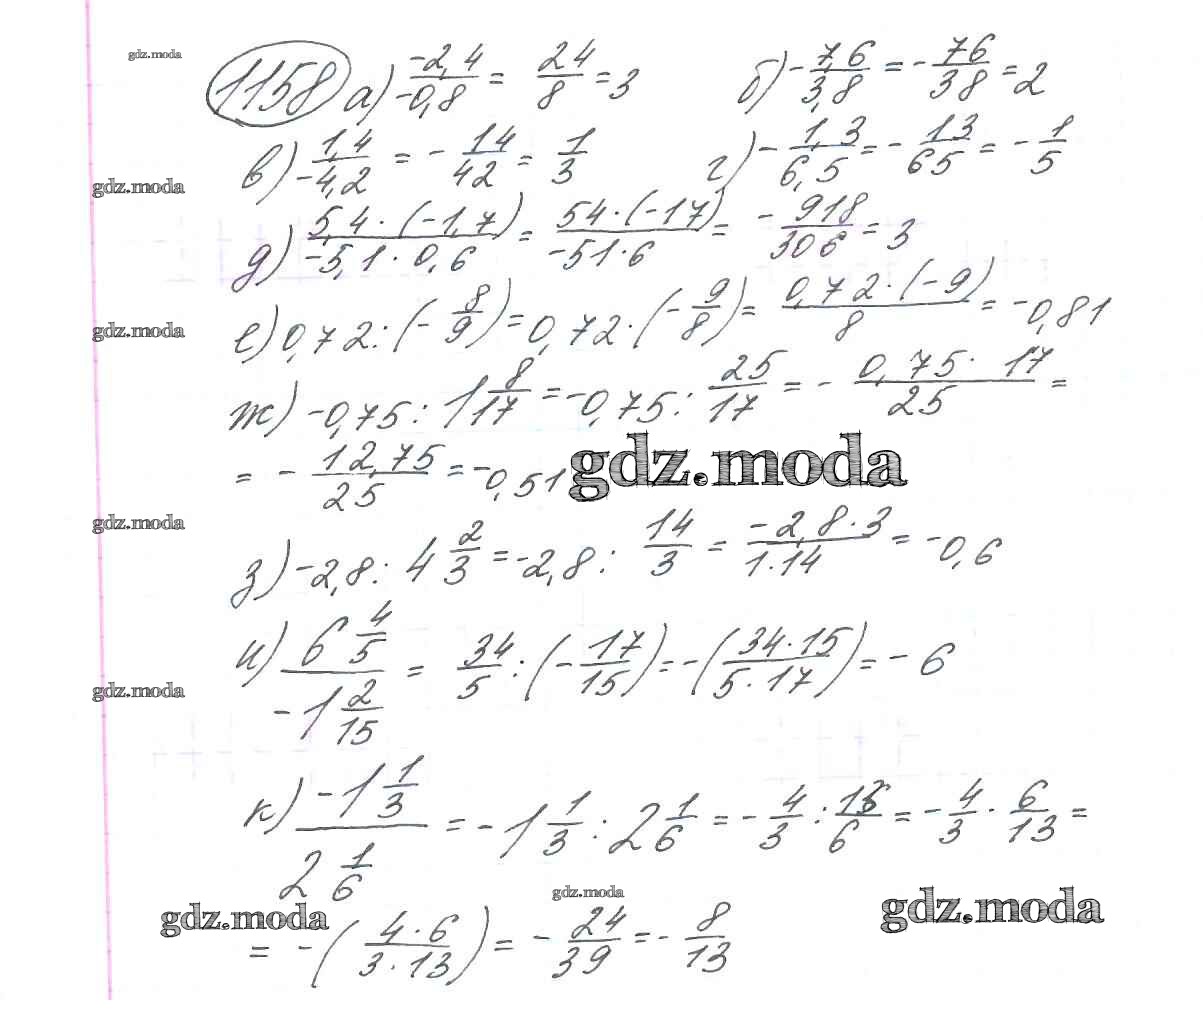 gdz.moda
1158 а) -2,4/-0,8 = 24/8 = 3 б) -7,6/3,8 = -76/38 = 2
в) 1,4/-4,2 = -14/42 = 1/3 г) -1,3/6,5 = -13/65 = -1/5
gdz.moda
д) 5,4·(-1,7)/-5,1·0,6 = 54·(-17)/-51·6 = -918/306 = 3
е) 0,72:(-8/9) = 0,72·(-9/8) = 0,72·(-9)/8 = -0,81
gdz.moda
ж) -0,75 : 1 8/17 = -0,75 : 25/17 = - 0,75·17/25 =
= - 12,75/25 = -0,51
gdz.moda
gdz.moda
з) -2,8 : 4 2/3 = -2,8 : 14/3 = -2,8·3/1·14 = -0,6
и) 6 4/5 / -1 2/15 = 34/5 : (-17/15) = -(34·15/5·17) = -6
gdz.moda
к) -1 1/3 / 2 1/6 = -1 1/3 : 2 1/6 = -4/3 : 13/6 = -4/3 · 6/13 =
gdz.moda
gdz.moda
gdz.moda
= -(4·6/3·13) = -24/39 = -8/13